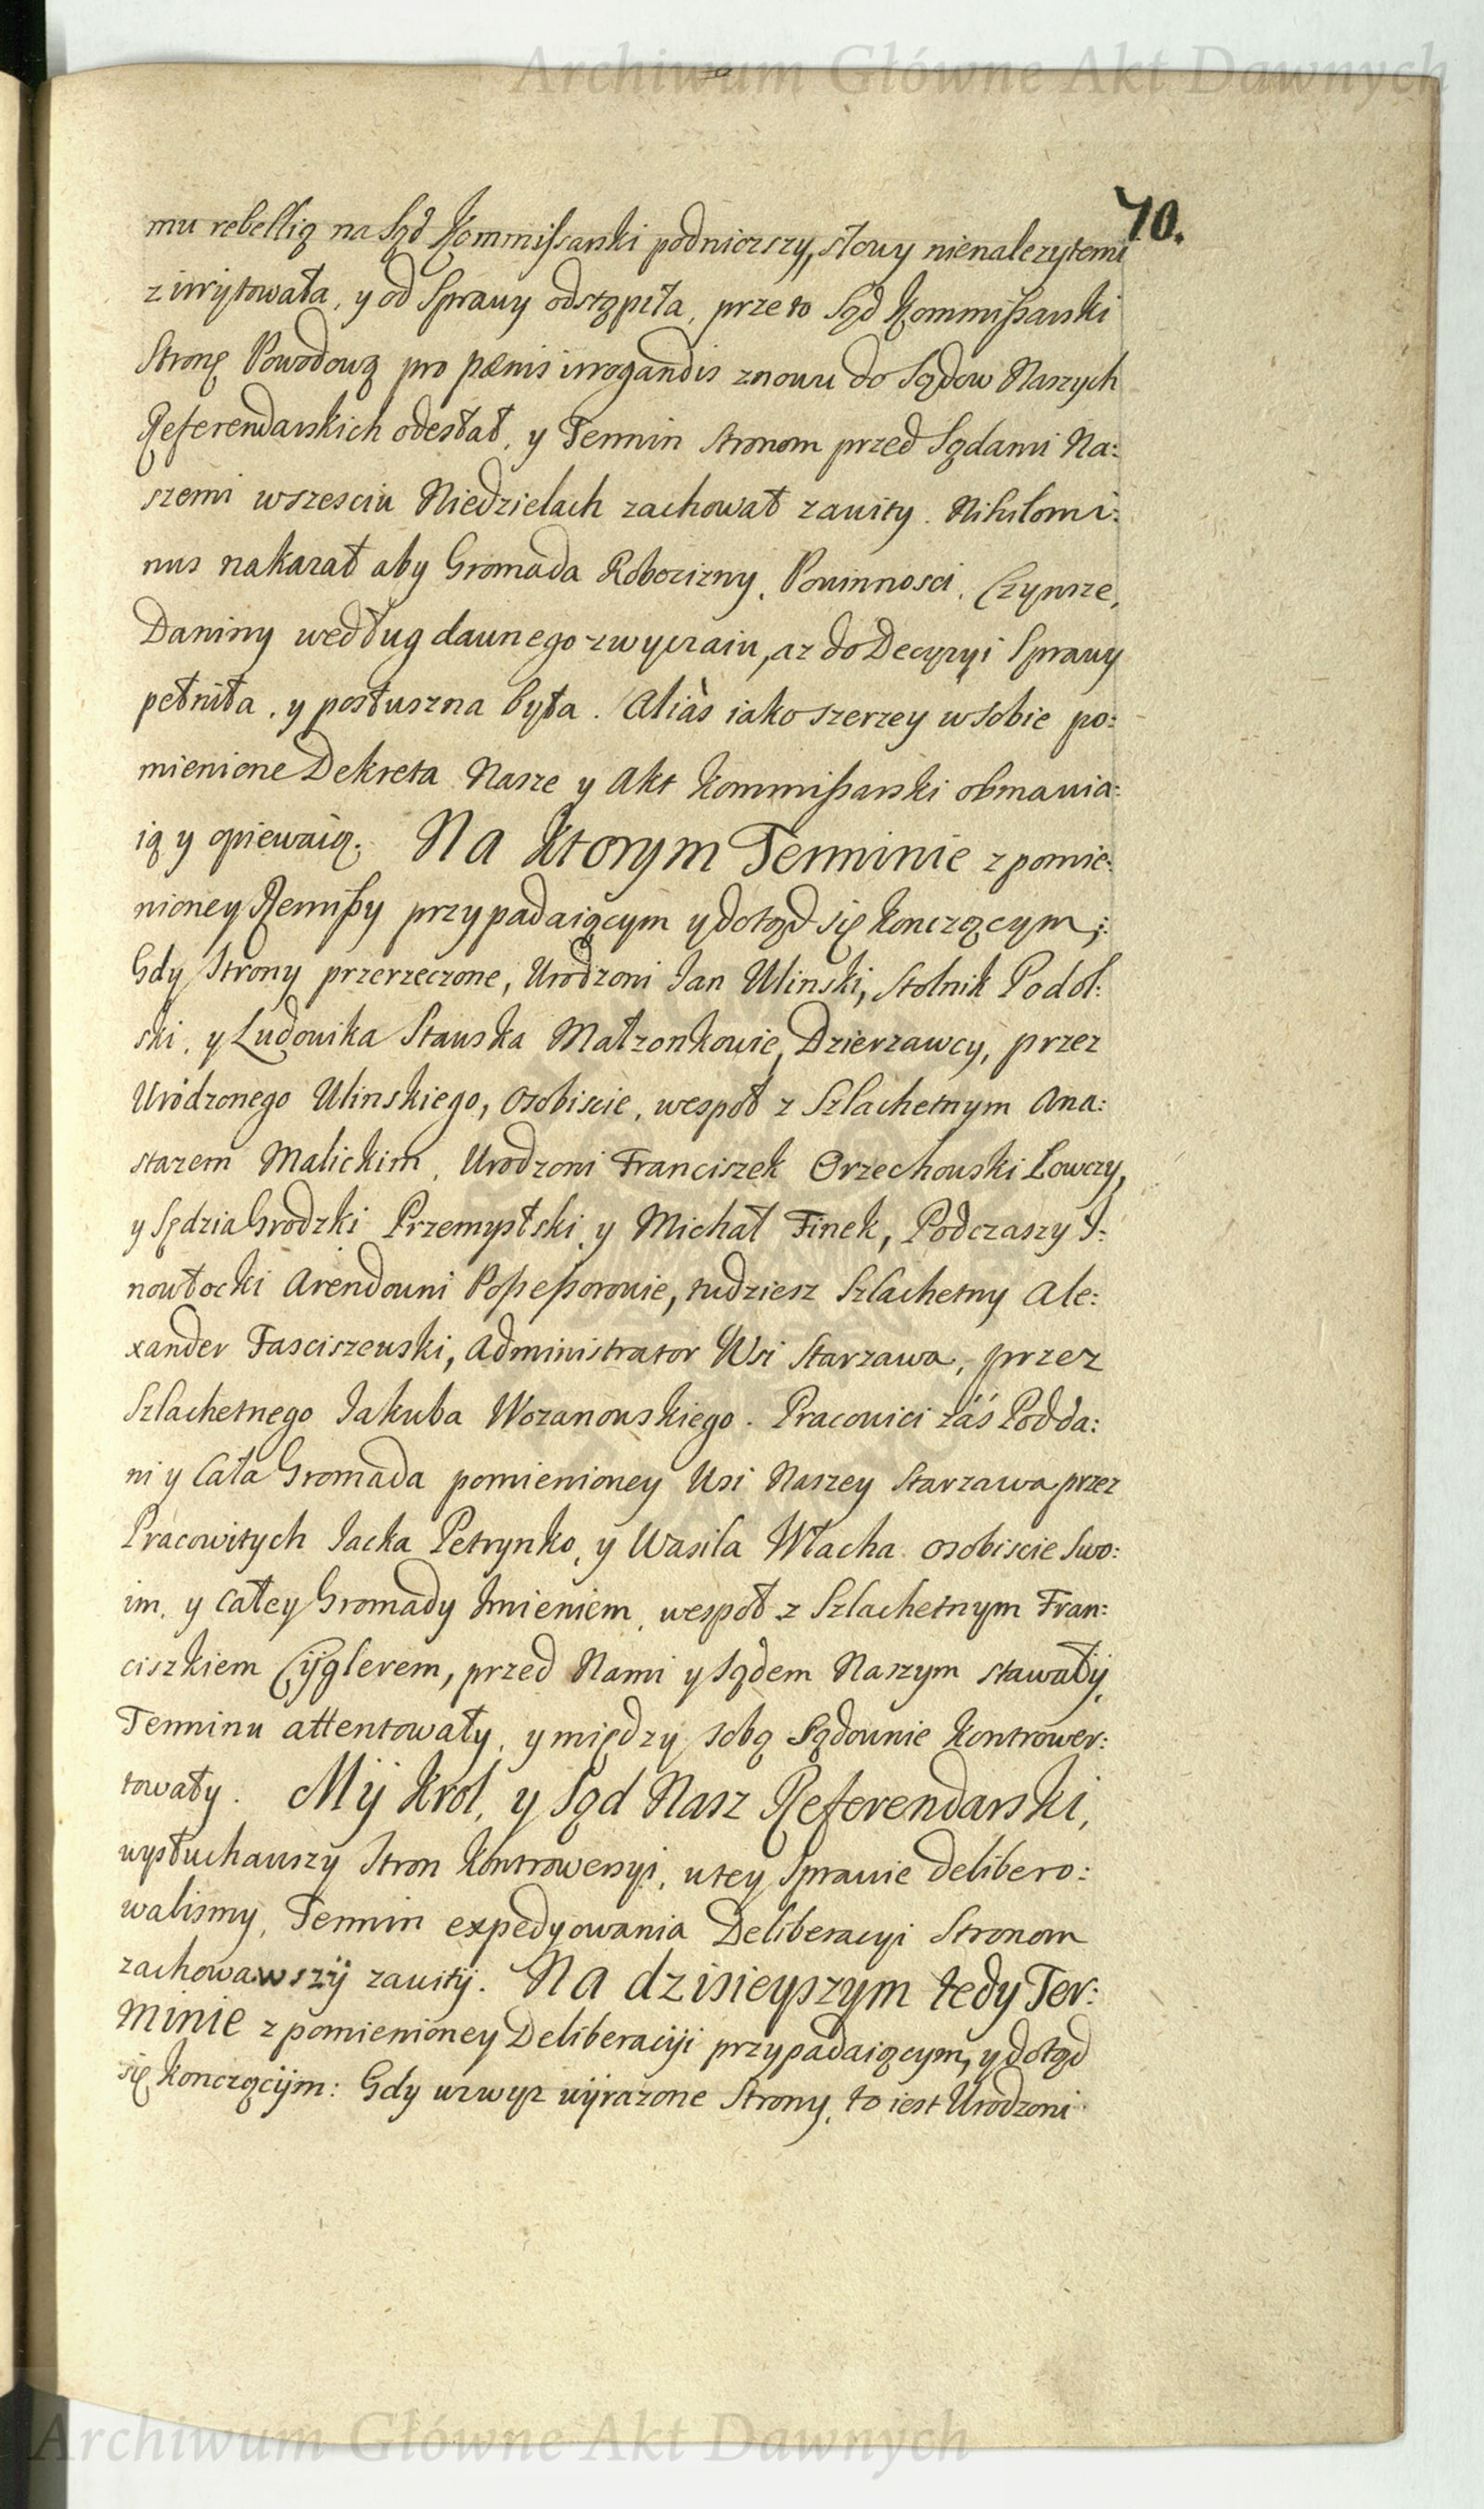 Archiwum Główne Akt Dawnych
70.
mu rebellią na Sąd Kommissarski podniozszy, słowy nienalezytemi
zirrytowała, y od Sprawy odstąpiła, przeto Sąd Kommißarski
Stronę Powodową pro pænis irrogandis znowu do Sądow Naszych
Referendarskich odesłał, y Termin stronom przed Sądami Na:
szemi wszesciu Niedzielach zachował zawity. Nihilomi:
nus nakazał aby Gromada Robocizny, Powinnosci, Czynsze,
Daniny według dawnego zwyczaiu, az do Decyzyi Sprawy
pełniła, y posłuszna była. Aliàs iako szerzey wsobie po:
mienione Dekreta Nasze y Akt Kommißarski obmawia:
ią y opiewaią. Na Ktorym Terminie z pomie:
nioney Remißy przypadaiącym y dotąd się Konczącym;
Gdy Strony przerzeczone, Urodzoni Jan Ulinski, Stolnik Podol:
ski, y Ludowika Stawska Małzonkowie, Dzierzawcy, przez
Urodzonego Ulinskiego, osobiscie, wespoł z Szlachetnym Ana:
stazem Malickim, Urodzoni Franciszek Orzechowski Łowczy,
y Sędzia Grodzki Przemysłski, y Michał Finek, Podczaszy I:
nowłocki Arendowni Poßeßorowie, tudziesz Szlachetny Ale:
xander Fasciszewski, Administrator Wsi Starzawa, przez
Szlachetnego Jakuba Wozanowskiego. Pracowici záś Podda:
ni y Cała Gromada pomienioney Wsi Naszey Starzawa przez
Pracowitych Jacka Petrynko, y Wasila Włacha osobiscie Swo:
im, y całey Gromady Imieniem, wespoł z Szlachetnym Fran:
ciszkiem Cÿglerem, przed Nami y Sądem Naszym stawałÿ,
Terminu attentowały, y między sobą Sądownie Kontrower:
towały. Mÿ Krol, y Sąd Nasz Referendarski,
wysłuchawszy Stron Kontrowersyi, wtey Sprawie delibero:
walismy, Termin expedyowania Deliberacyi Stronom
zachowawszÿ zawitÿ. Na dzisieyszym tedy Ter:
minie z pomienioney Deliberacÿi przypadaiącym, y dotąd
się Konczącÿm: Gdy wzwyz wÿrazone Strony, to iest Urodzoni
Archiwum Główne Akt Dawnych